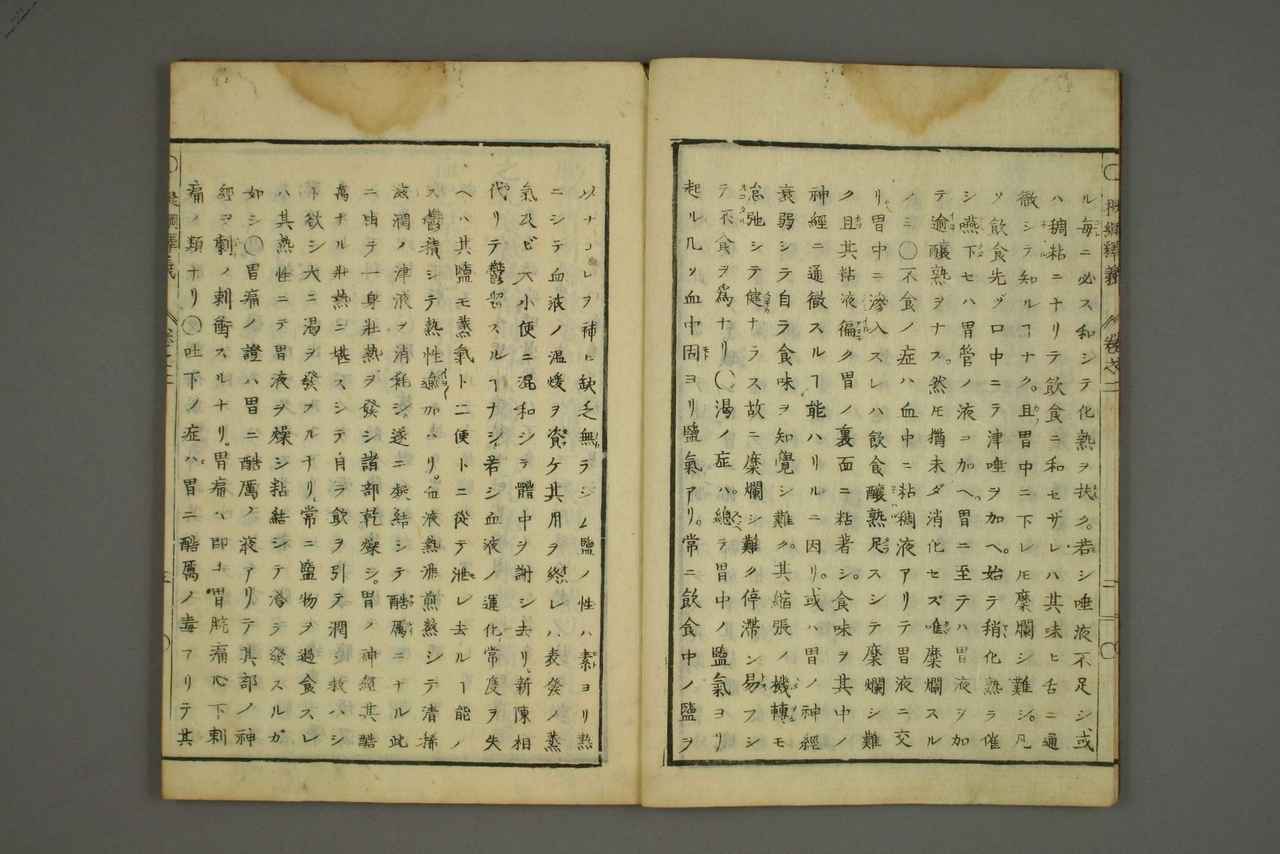 ル毎ニ必ス和シテ化熟ヲ扶ク。若シ唾液不足シ或
ハ稠粘ニナリテ飲食ニ和セザレハ其味ヒ舌ニ通
徹シテ知ルヿナク。且胃中ニ下レ𪜈糜爛シ難シ。凡
ソ飲食先ヅ口中ニテ津唾ヲ加ヘ。始テ稍化熟ヲ催
シ燕下セハ胃管ノ液コ加ヘ胃ニ至テハ胃液ヲ加
テ逾釀熟ヲナス。然𪜈猶未ダ消化セズ唯糜爛スル
ノミ〇不食ノ症ハ血中ニ粘稠液アリテ胃液ニ交
リ胃中ニ滲入スレハ飲食釀熟足スシテ糜爛シ難
ク且其粘液偏ク胃ノ裏面ニ粘著シ。食味ヲ其中ノ
神經ニ通徹スルヿ能ハリルニ因リ。或ハ胃ノ神經
衰弱シテ自ラ食味ヲ知覺シ難ク。其縮張ノ機轉モ
怠弛シテ健ナラス故ニ糜爛シ難ク停滯シ易フシ
テ不食ヲ爲ナリ〇渇ノ症ハ。總テ胃中ノ鹽氣ヨリ
起ル凡ソ血中固ヨリ鹽氣アリ。常ニ飲食中ノ鹽ヲ
以テコレヲ補ヒ缺乏無ラシム鹽ノ性ハ素ヨリ熱
ニシテ血液ノ温煖ヲ資ケ其用ヲ終レハ表發ノ蒸
氣及ビ大小便ニ混和シテ體中ヲ謝シ去リ新陳相
代リテ鬱留スルヿナシ。若シ血液ノ運化常度ヲ失
ヘハ其鹽モ蒸氣ト二便トニ從テ泄レ去ルヿ能ノ
ス鬱積シテ熱性逾加ハリ。血液熱沸煎熬シテ清稀
滋潤ノ津液ヲ消耗シ遂ニ凝結シテ酷厲ニナル此
ニ由テ一身壯熱ヲ發シ諸部乾燥シ。胃ノ神經其酷
ト欲シ大ニ渇ヲ發スルナリ。常ニ鹽物ヲ過食スレ
ハ其熱性ニテ胃液ヲ燥シ粘結シテ渇ヲ發スルガ
如シ〇胃痛ノ證ハ胃ニ酷厲ノ液アリテ其部ノ神
經ヲ劇ク刺衝スルナリ。胃痛ハ即チ胃脘痛心下刺
痛ノ類ナリ〇吐下ノ症ハ。胃ニ酷厲ノ毒アリテ其